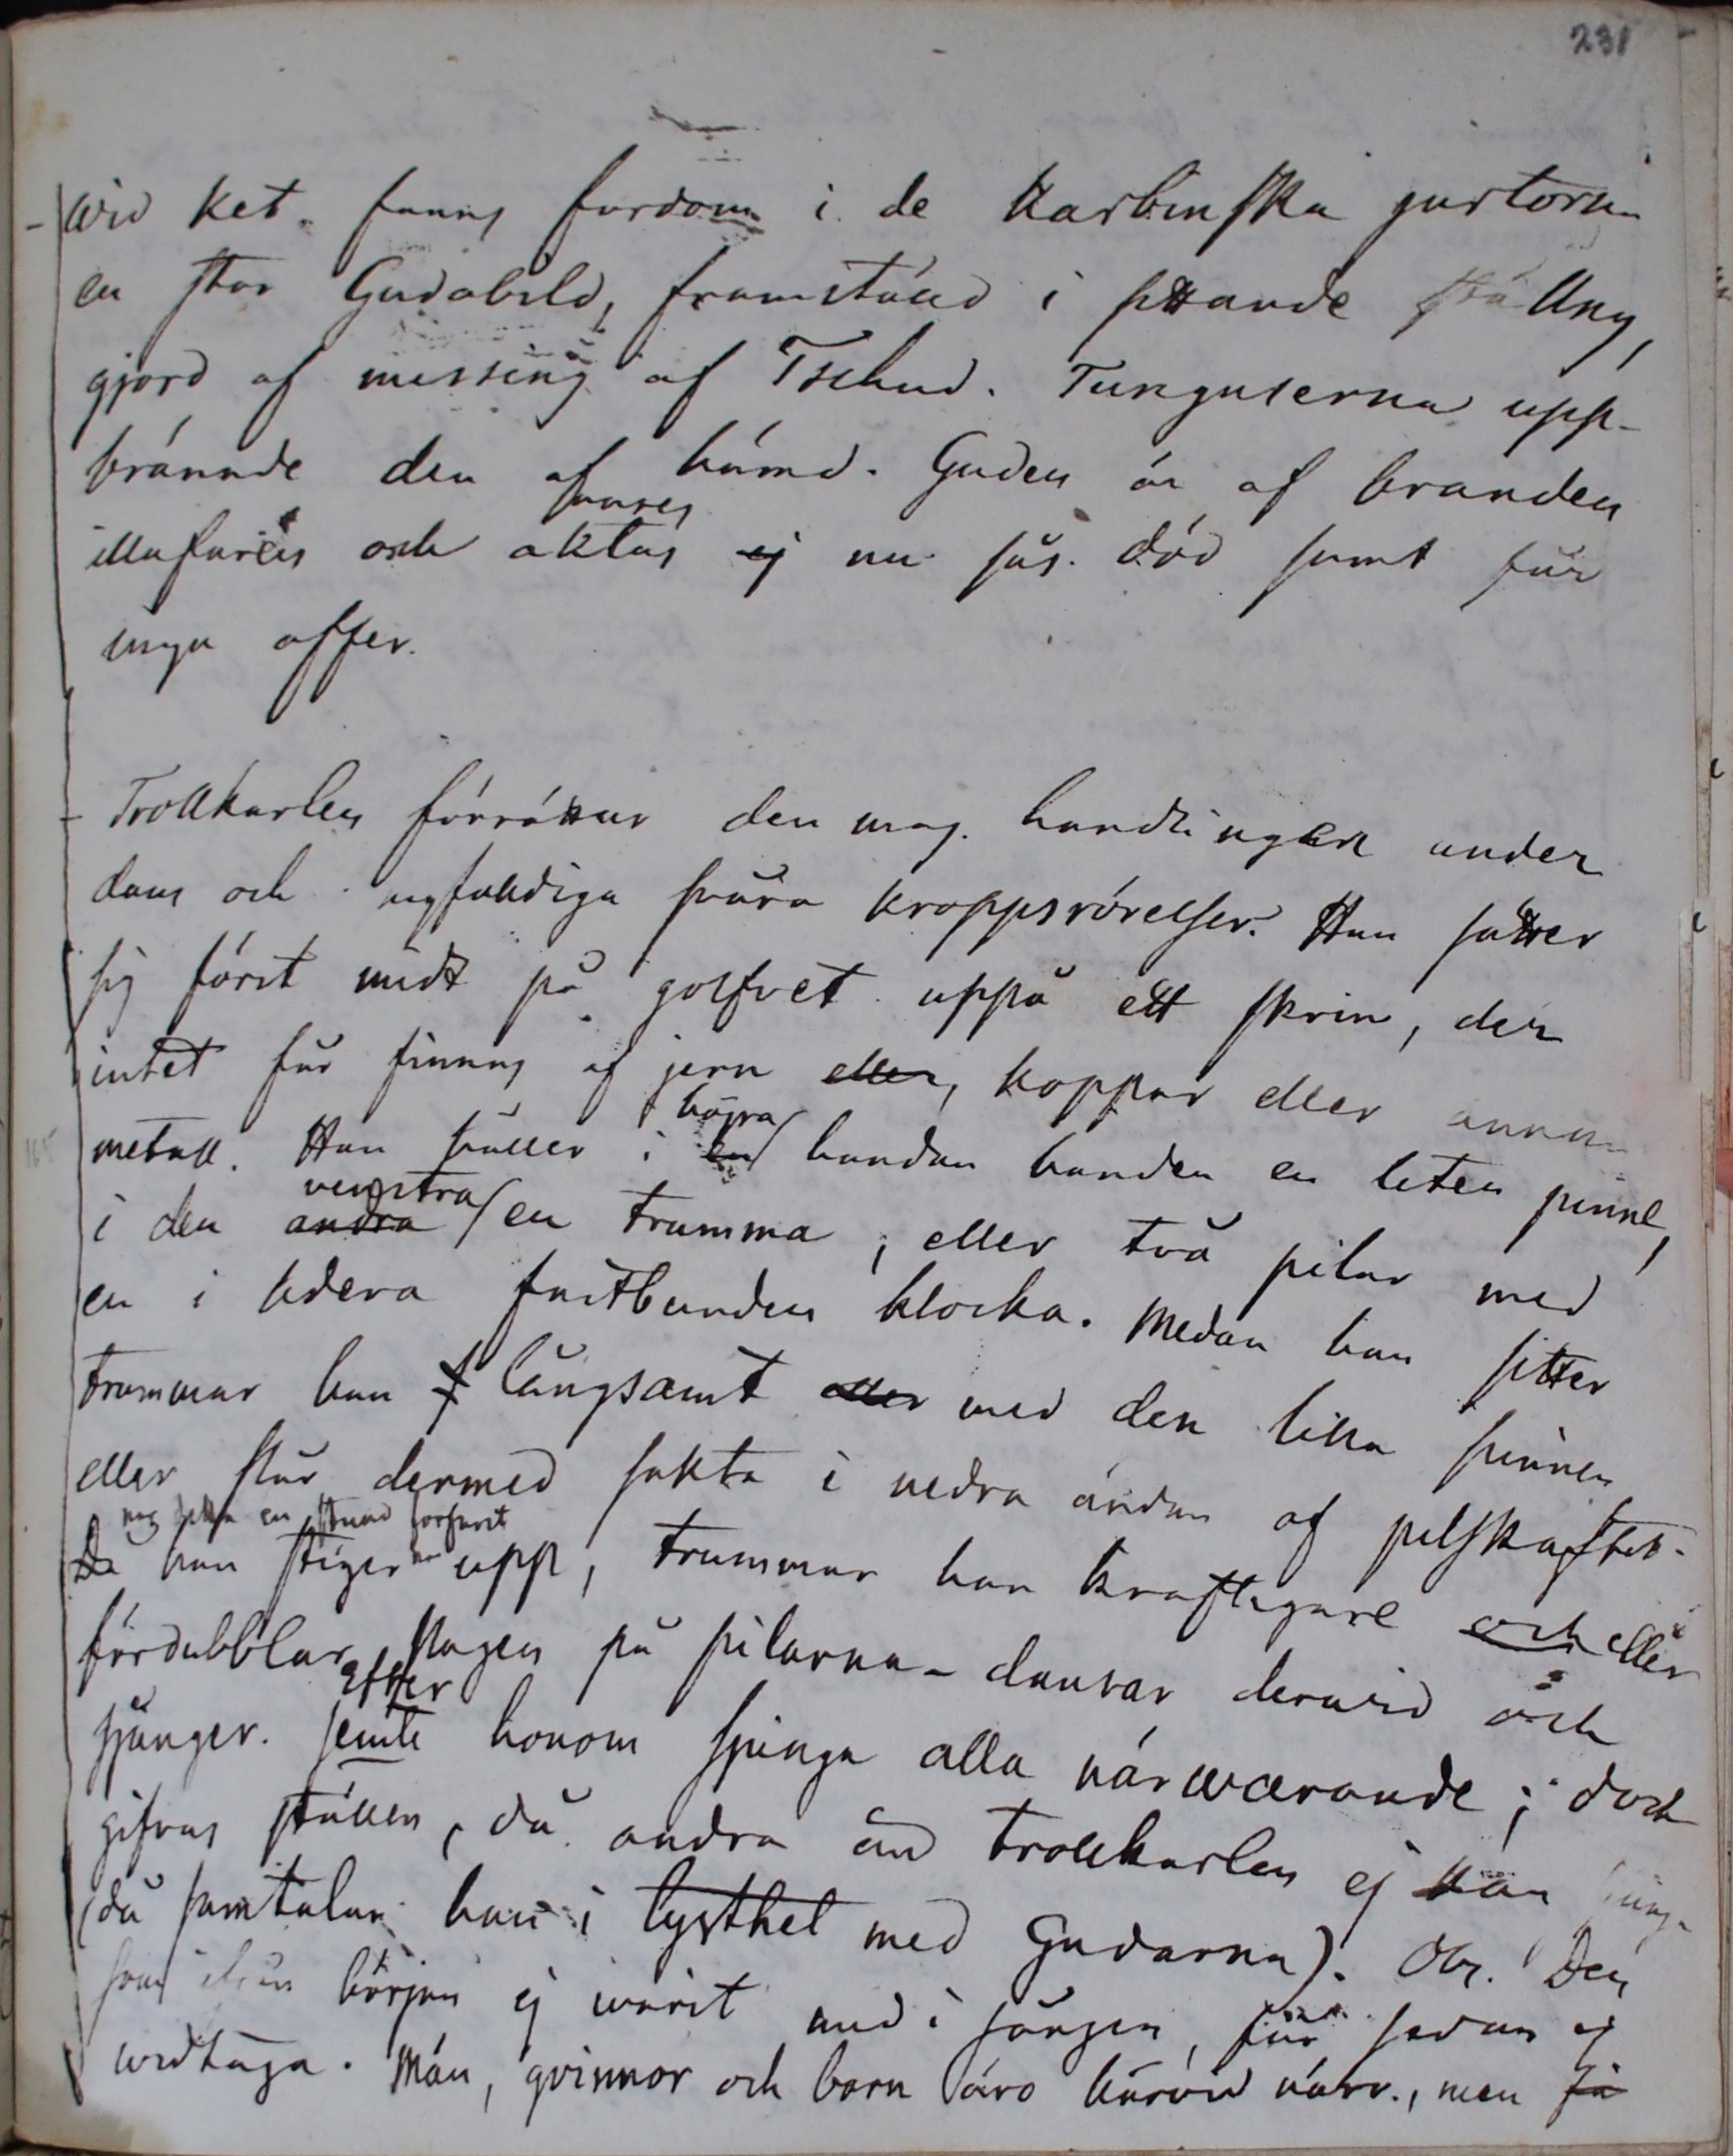 231
Wid Ket. fanns fordom i de Karbinska jurtorna
en stor Gudabild, framstäld i sittande ställng,
gjord af messing af Tschud. Tunguserna upp-
brände den af hämd. Guden är af branden
illafaren och aktas ej nu sås. död samt får
anses
inga offer.
Trollkarlen förrättar den mag. handlingen under
dans och mgfalldiga svåra kroppsrörelser. Han sätter
sig först midt på golfvet uppå ett skrin, der
intet får finnas af jern eller, koppar eller annan
metall. Han håller i en handan handen en liten pinne,
högra
i den andra en trumma, eller två pilar med
venstra
en i nedera fastbunden klocka. Medan han sitter
trummar han långsamt eller med den lilla pinnen
eller slår dermed sakta i nedra ändan af pilskaftet.
en stund fortfarit
Då han stiger upp, trummar han kraftigare och eller
fördubblar slagen på pilarna - dansar dervid och
sjunger. Jemte honom sjunga alla närwarande; doch
Efter
gifvas ställen, då andra än trollkarlen ej kan sjunga
(då samtalar han i tysthet med Gudarna). Obs. Den
som ifrån början ej warit med i sången, får sedan ej
widtaga. Män, qvinnor och barn äro härvid närv., men få